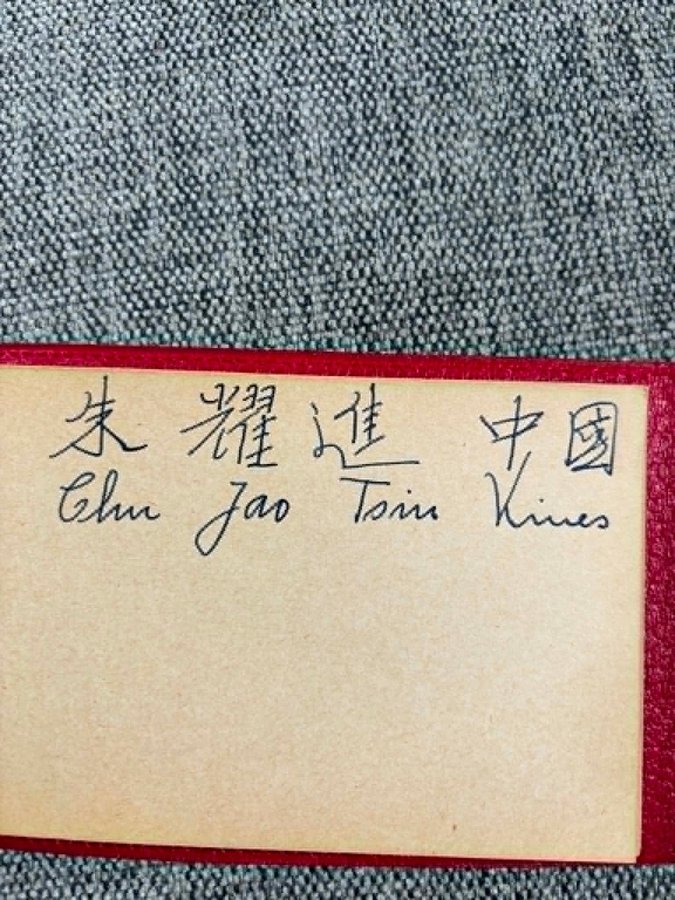 朱 耀 進 中 國
Chu Jao Tsin Kines